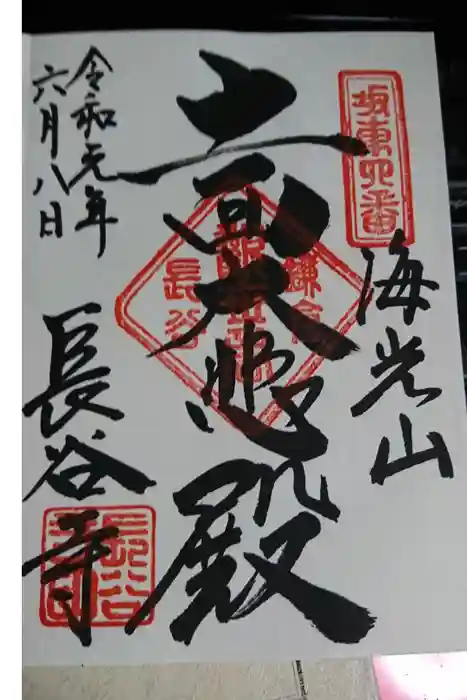 坂東四番
海光山
十一面大悲殿
鎌倉
長谷
令和元年
六月八日
長谷寺
長谷
寺印